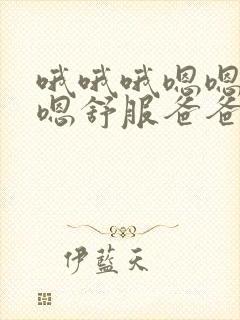 哦哦哦嗯嗯
嗯舒服爸爸
伊蓝天